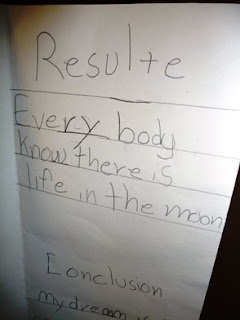 Resulte
Every body
know there is
life in the moon
Conclusion
my dream is